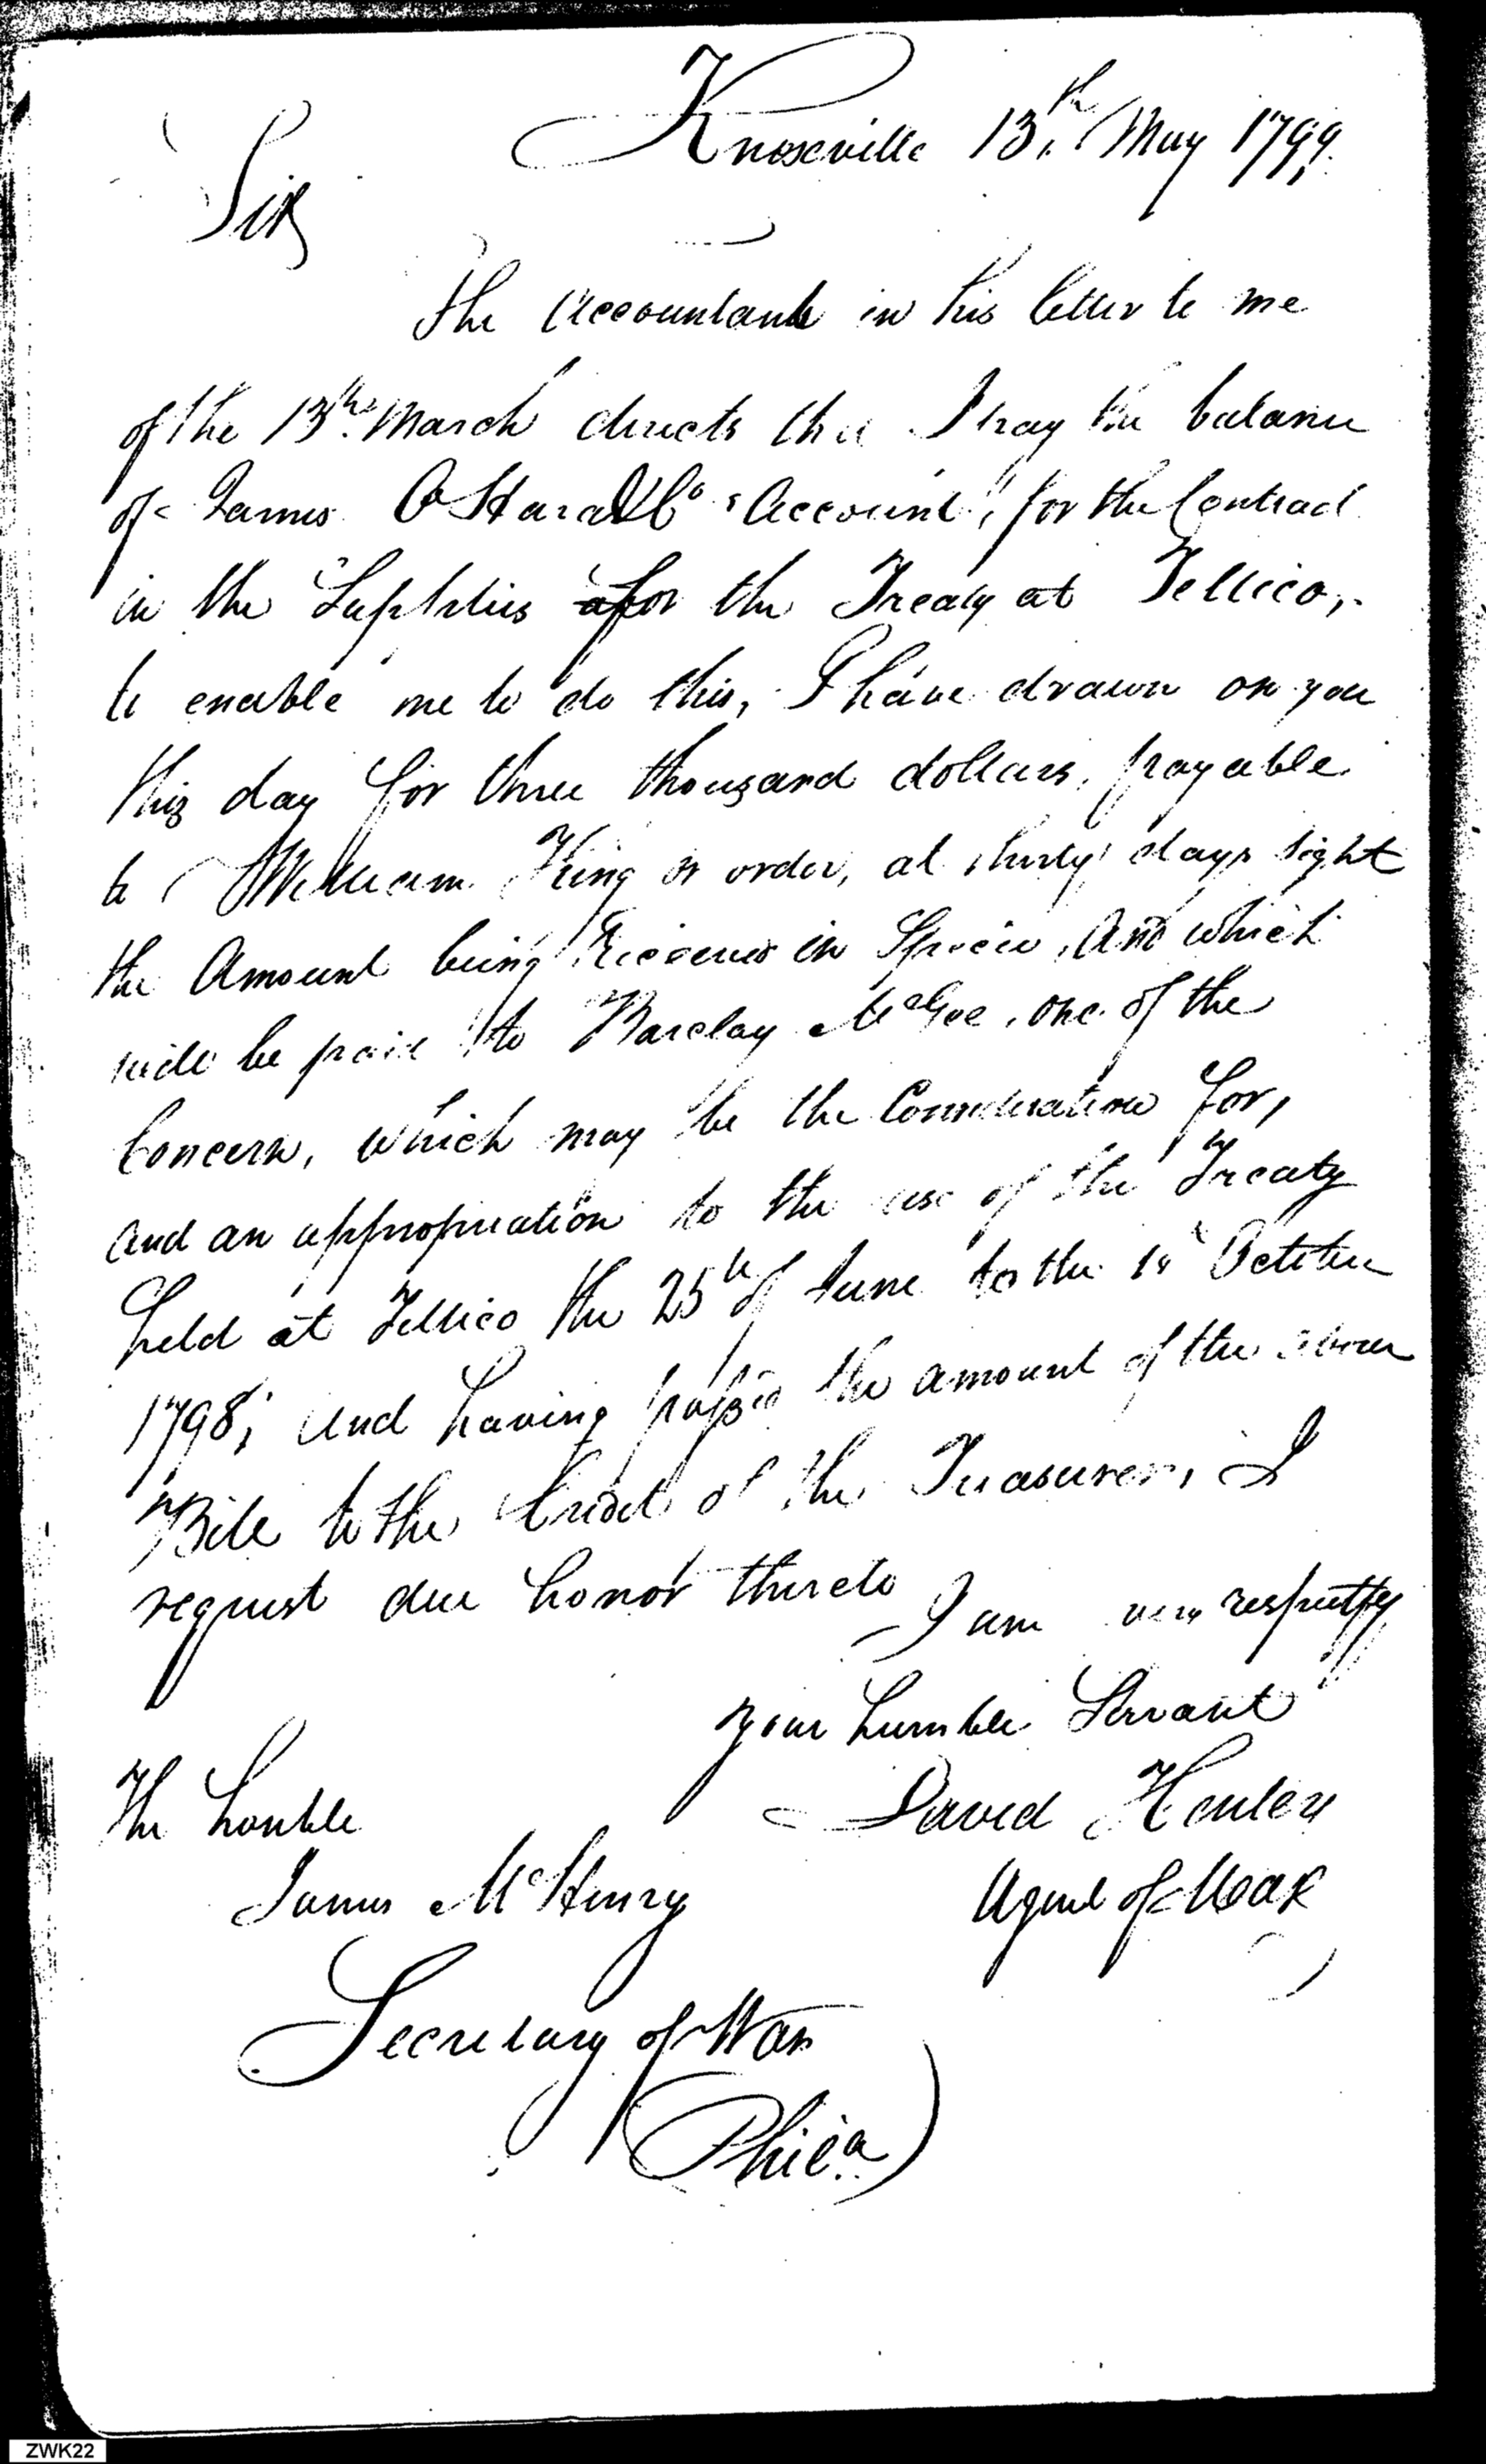 Knoxville 13th May 1799.
Sir
The Accountant in his letter to me
of the 13th March directs that I pay the balance
of James O Hara & Co's Account, for the Contract
in the Supplies for the Treaty at Tellico,
to enable me to do this, I have drawn on you
this day for three thousand dollars, payable
to William King or order, at thirty days sight
the Amount being Received in Specie, And which
will be paid to Barclay McGee, one of the
Concern, which may be the Consideration for,
and an appropriation to the use of the Treaty
held at Tellico the 25th of June to the 1st October
1798; and having passed the amount of the above
Bill to the Credit of the Treasurer, I
request due honor thereto
I am very respectfy
your humble Servant
David Henley
Agent of War
The honble
James McHenry
Secretary of War
Phila.
ZWK22